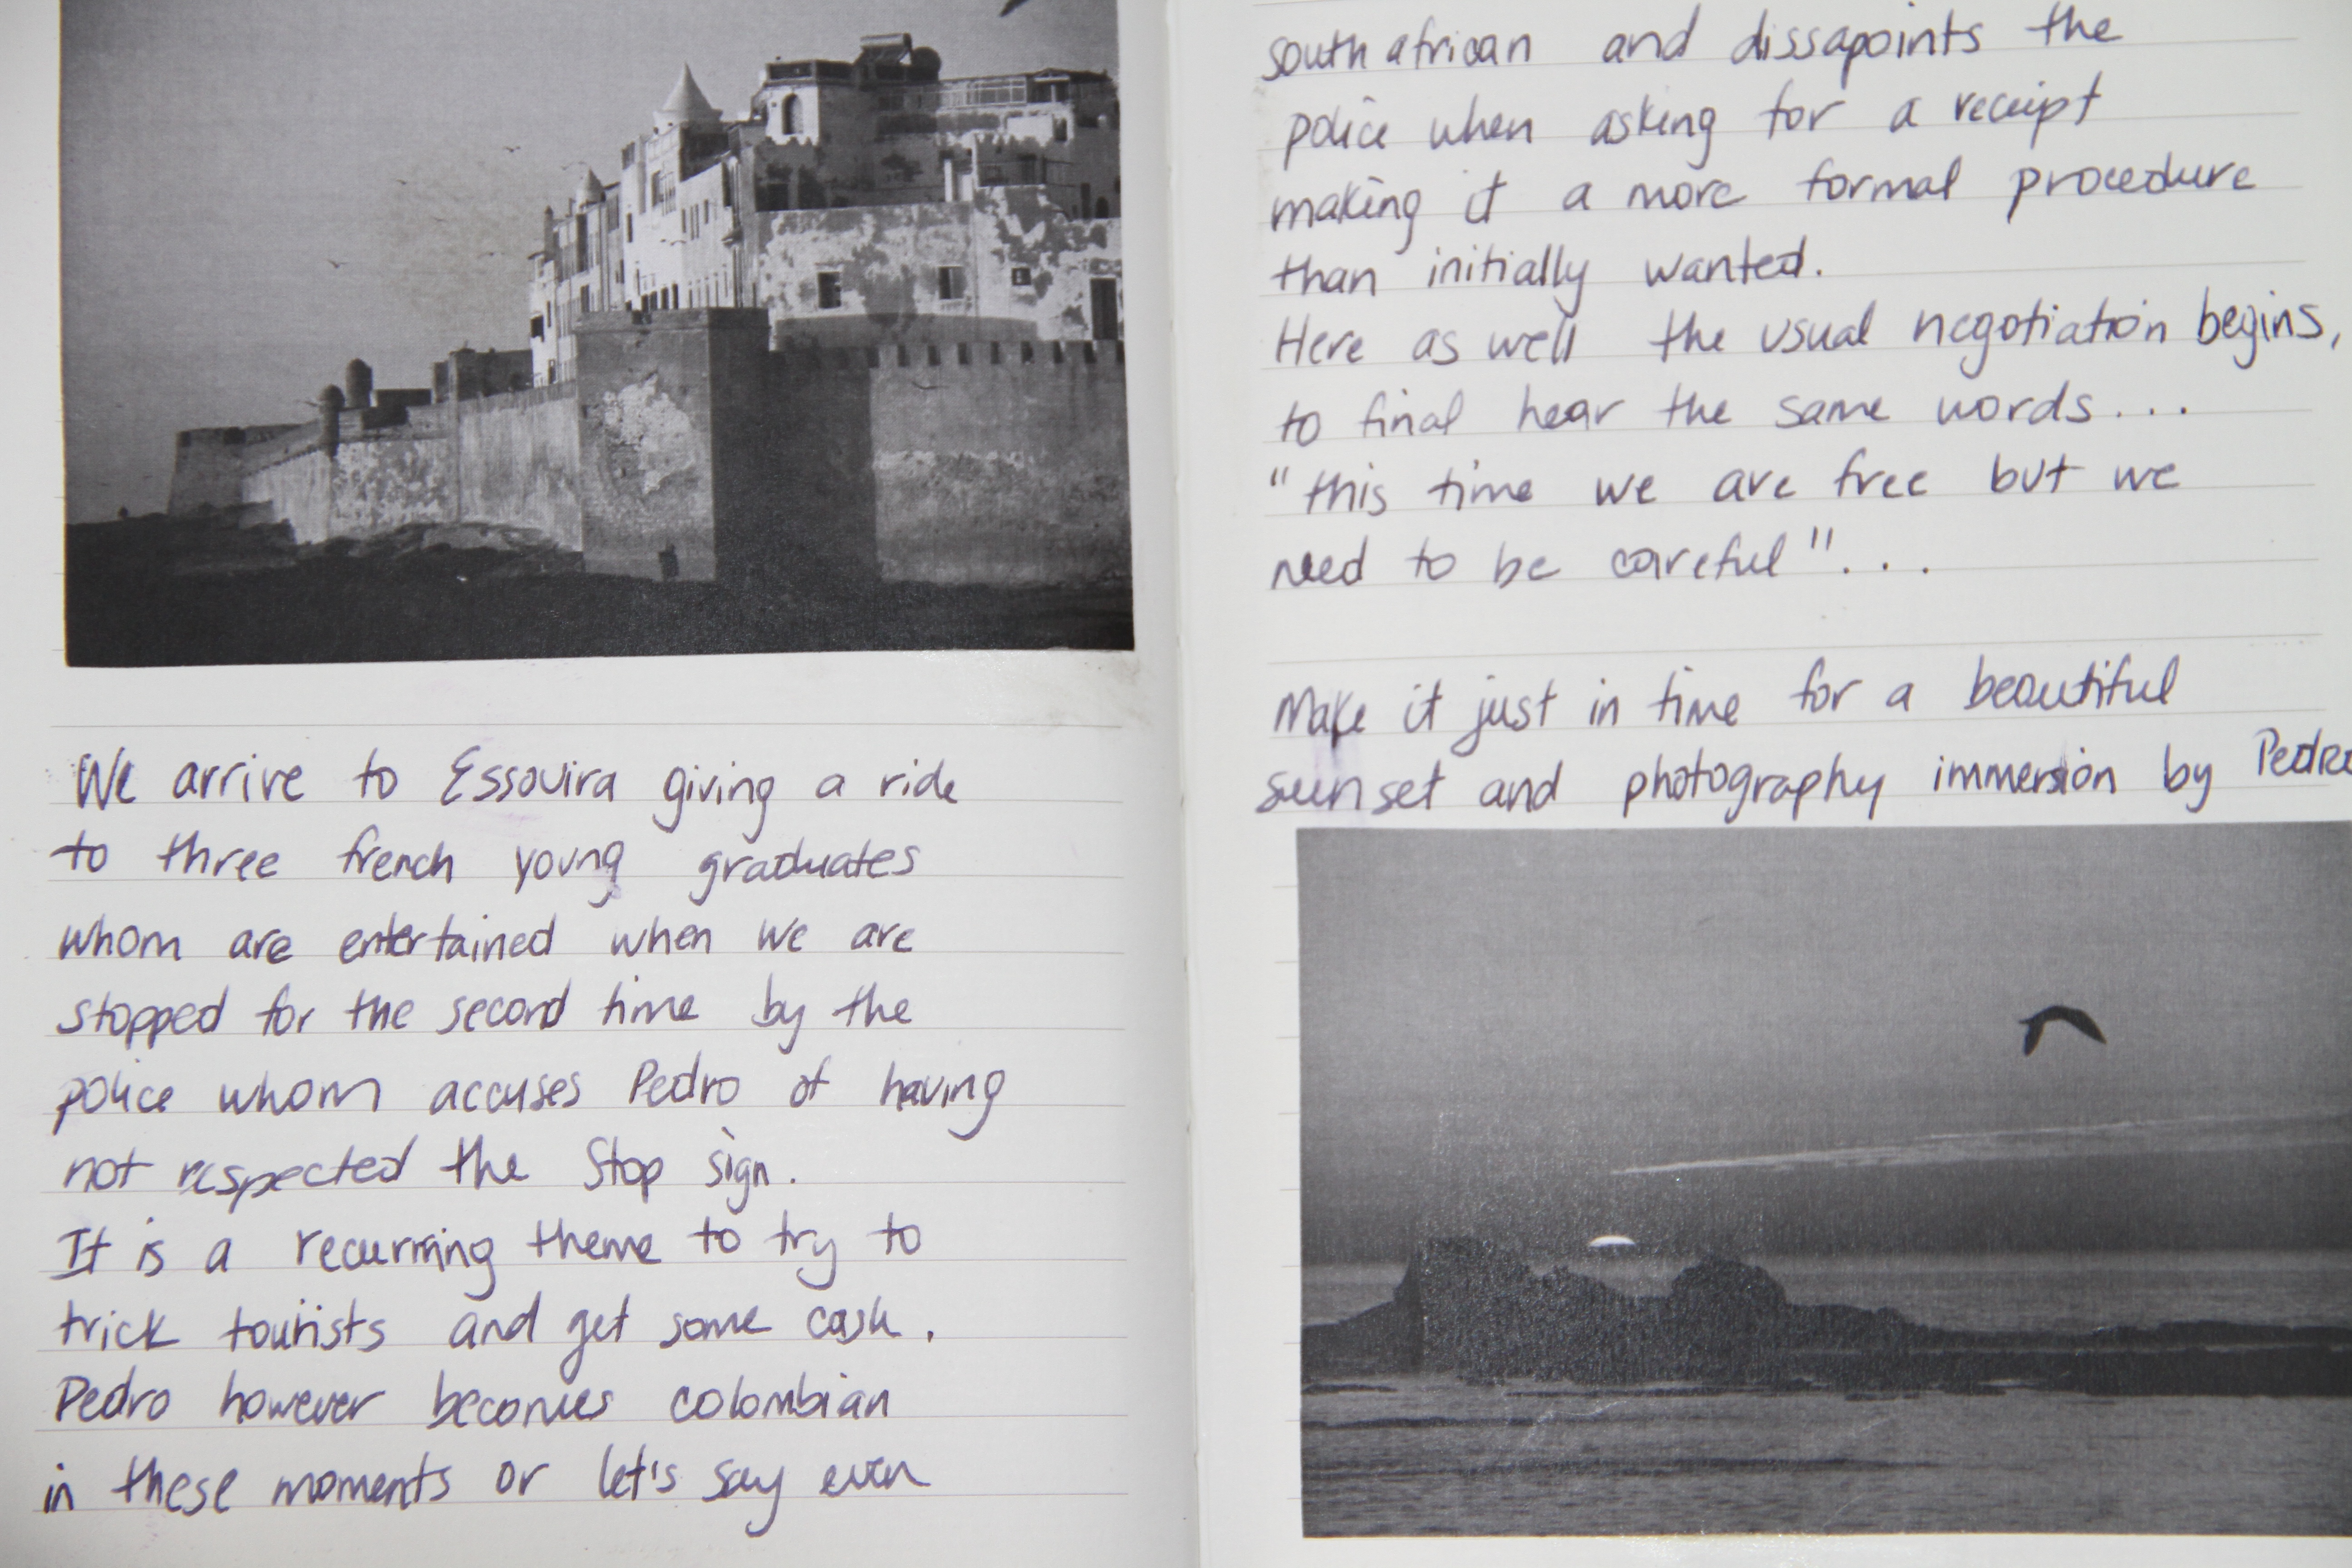 We arrive to Essouira giving a ride
to three french young graduates
whom are entertained when we are
stopped for the second time by the
police whom accuses Pedro of having
not respected the Stop sign.
It is a recurring theme to try to
trick tourists and get some cash.
Pedro however becomes colombian
in these moments or let's say even
south african and dissapoints the
police when asking for a receipt
making it a more formal procedure
than initially wanted.
Here as well the usual negotiation begins,
to final hear the same words...
"this time we are free but we
need to be careful"...
Make it just in time for a beautiful
sunset and photography immersion by Pedro